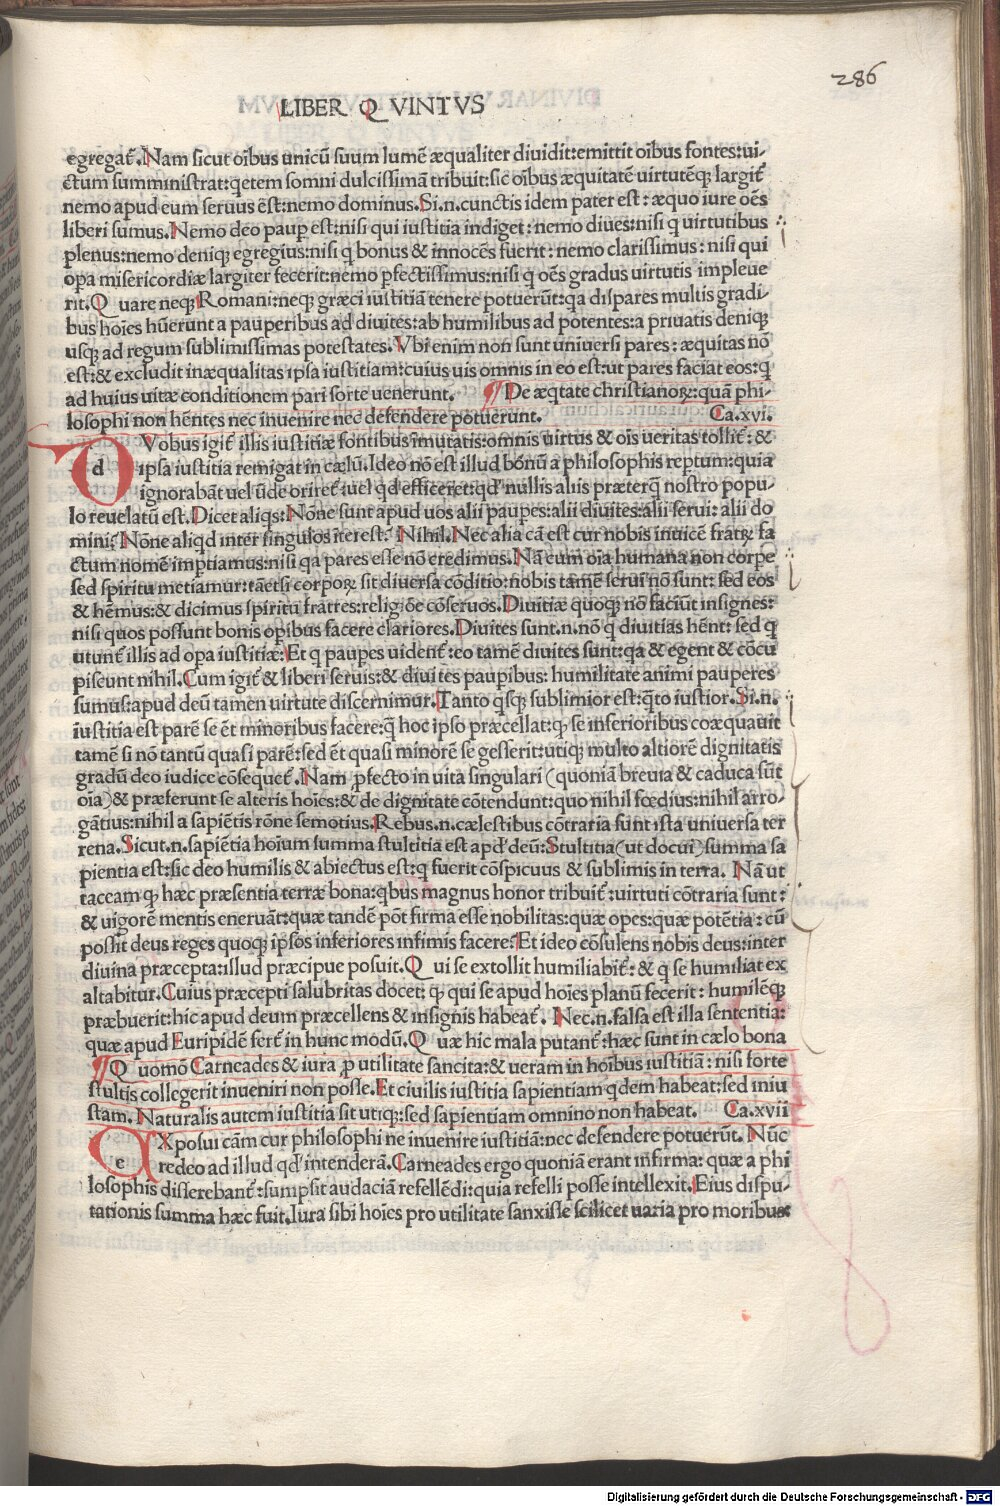 286
LIBER Q VINTVS
egregat̄. Nam sicut oībus unicū suum lumē æqualiter diuidit: emittit oībus fontes: ui-
ctum sumministrat: qetem somni dulcissimā tribuit: sic oībus æquitatē uirtutēq; largit̄
nemo apud eum seruus ēst: nemo dominus. Si.n. cunctis idem pater est: æquo iure oēs
liberi sumus. Nemo deo paup̄ est: nisi qui iustitia indiget: nemo diues: nisi q uirtutibus
plenus: nemo deniq; egregius: nisi q bonus & innocēs fuerit: nemo clarissimus: nisi qui
opa misericordiæ largiter fecerit: nemo p̄fectissimus: nisi q oēs gradus uirtutis impleue
rit. Q uare neq; Romani: neq; græci iustitiā tenere potuerūt: qa dispares multis gradi-
bus hoīes hūerunt a pauperibus ad diuites: ab humilibus ad potentes: a priuatis deniq;
usq; ad regum sublimissimas potestates. Vbi enim non sunt uniuersi pares: æquitas nō
est: & excludit inæqualitas ipsa iustitiam: cuius uis omnis in eo est: ut pares faciat eos: q
ad huius uitæ conditionem pari sorte uenerunt. ¶ De æqtate christianoꝝ: quā phi-
losophi non hēntes nec inuenire nec defendere potuerunt. Ca.xvi.
d VObus igit̄ illis iustitiæ fontibus īmutatis: omnis uirtus & oīs ueritas tollit̄: &
ipsa iustitia remigat in cælū. Ideo nō est illud bonū a philosophis reptum: quia
ignorabāt uel ūde oriret̄ iuel qd efficeret: qd' nullis aliis præterq̄ nostro popu-
lo reuelatū est. Dicet aliqs: Nōne sunt apud uos alii paupes: alii diuites: alii serui: alii do
mini? Nōne aliqd inter singulos īterest? Nihil. Nec alia cā est cur nobis inuicē fratꝝ fa
ctum nomē imptiamus: nisi qa pares esse nō credimus. Nā cum oīa humana non corpe
sed spiritu metiamur: tāetsi corporꝝ sit diuersa cōditio: nobis tamē serui nō sunt: sed eos
& hēmus: & dicimus spiritu frattes: religiōe cōseruos. Diuitiæ quoq; nō faciūt insignes:
nisi quos possunt bonis opibus facere clariores. Diuites sunt.n. nō q diuitias hēnt: sed q
utunt̄ illis ad opa iustitiæ: Et q paupes uident̄: eo tamē diuites sunt: qa & egent & cōcu
piscunt nihil. Cum igit̄ & liberi seruis: & diuites paupibus: humilitate animi pauperes
sumus: apud deū tamen uirtute discernimur. Tanto qsq; sublimior est: qto iustior. Si.n.
iustitia est parē se ēt minoribus facere: q̄ hoc ipso præcellat: q̄ se inferioribus coæquauit
tamē si nō tantū quasi parē: sed ēt quasi minorē se gesserit: utiq; multo altiorē dignitatis
gradū deo iudice cōsequet̄. Nam p̄fecto in uita singulari (quoniā breuia & caduca sūt
oīa) & præferunt se alteris hoīes: & de dignitate cōtendunt: quo nihil fœdius: nihil arro-
gātius: nihil a sapiētis rōne semotius. Rebus.n. cælestibus cōtraria sunt ista uniuersa ter
rena. Sicut.n. sapiētia hoīum summa stultitia est apd' deū: Stultitia (ut docui) summa sa
pientia est: sic deo humilis & abiectus est: q fuerit cōspicuus & sublimis in terra. Nā ut
taceam q̄ hæc præsentia terræ bona: qbus magnus honor tribuit̄: uirtuti cōtraria sunt:
& uigorē mentis eneruāt: quæ tandē pōt firma esse nobilitas: quæ opes: quæ potētia: cū
possit deus reges quoq; ipsos inferiores infimis facere? Et ideo cōsulens nobis deus: inter
diuina præcepta: illud præcipue posuit. Q ui se extollit humiliabit̄: & q se humiliat ex
altabitur. Cuius præcepti salubritas docet: q̄ qui se apud hoīes planū fecerit: humilēq;
præbuerit: hic apud deum præcellens & insignis habeat̄. Nec.n. falsa est illa sententia:
quæ apud Euripidē fert̄ in hunc modū. Q uæ hic mala putant̄: hæc sunt in cælo bona
¶ Q uomō Carneades & iura ꝓ utilitate sancita: & ueram in hoībus iustitiā: nisi forte
stultis collegerit inueniri non posse. Et ciuilis iustitia sapientiam qdem habeat: sed iniu
stam. Naturalis autem iustitia sit utiq;: sed sapientiam omnino non habeat. Ca.xvii
e Xposui cām cur philosophi ne inuenire iustitiā: nec defendere potuerūt. Nūc
redeo ad illud qd' intenderā. Carneades ergo quoniā erant infirma: quæ a phi
losophis disserebant̄: sumpsit audaciā refellēdi: quia refelli posse intellexit. Eius dispu-
tationis summa hæc fuit. Iura sibi hoīes pro utilitate sanxisse scilicet uaria pro moribus:
Digitalisierung gefördert durch die Deutsche Forschungsgemeinschaft - DFG